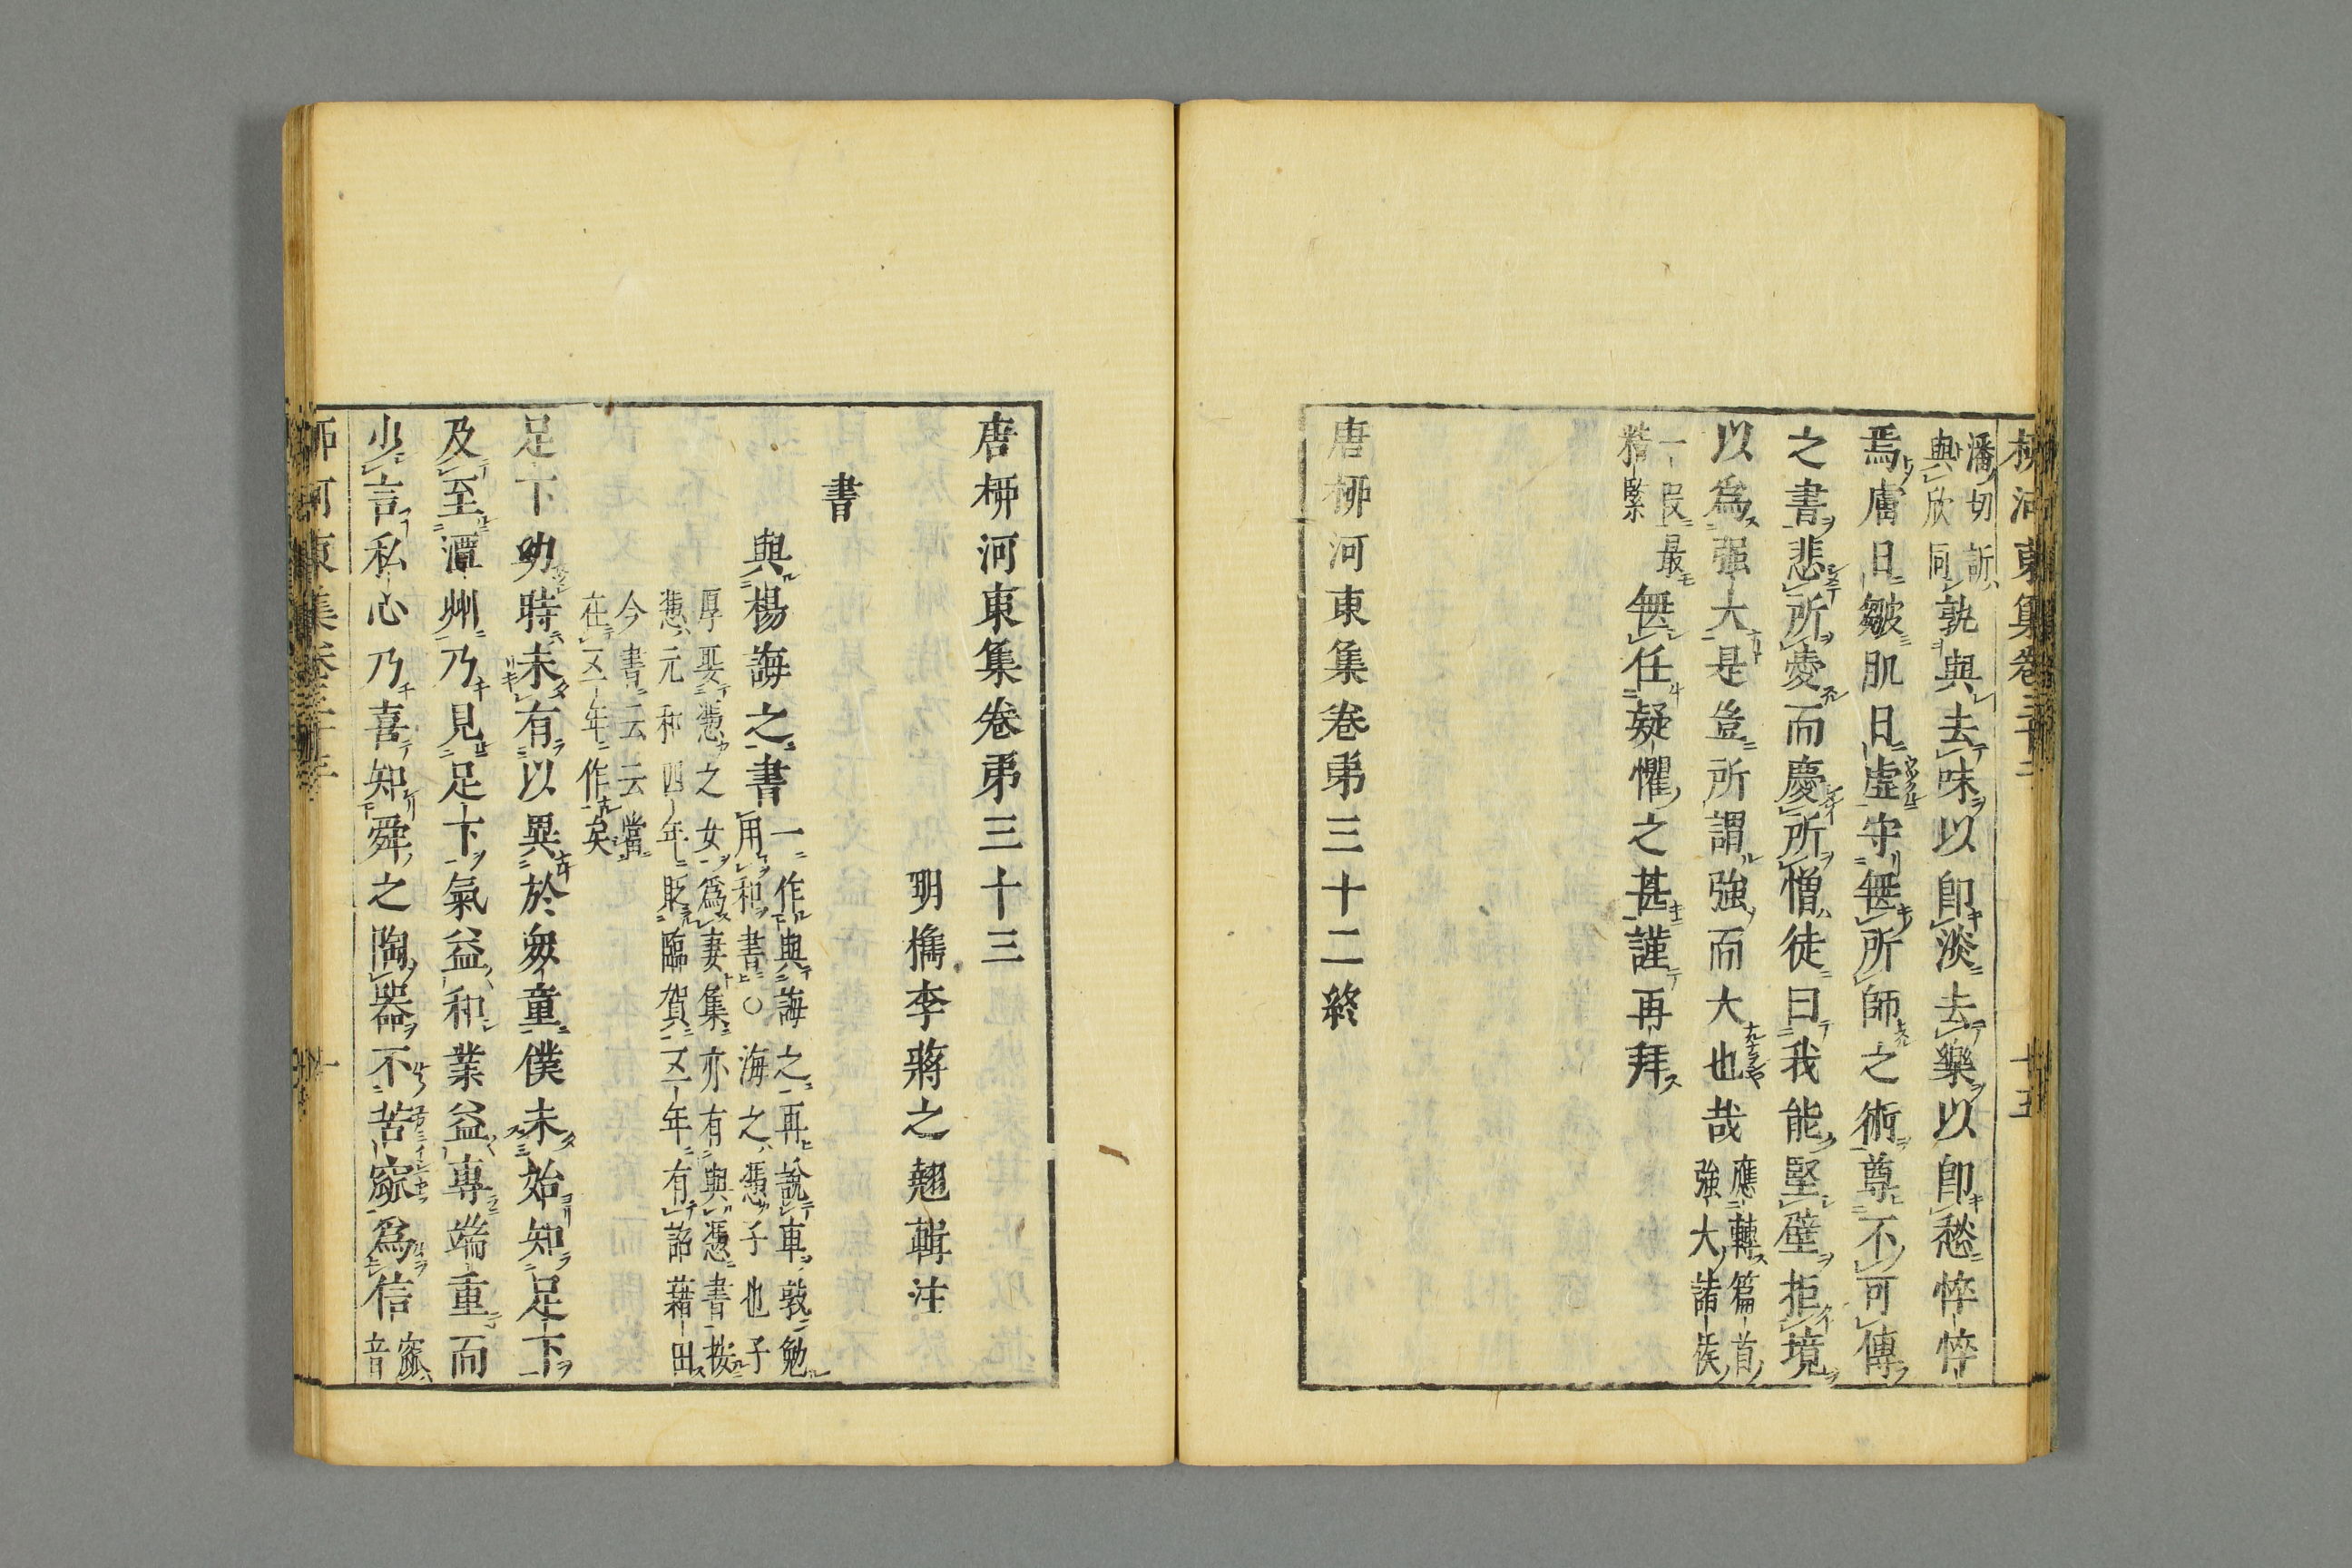 潘切訢
與欣同孰與去味以卽淡去樂以卽愁悴悴
焉膚日皺肌日虛守無所師之術尊不可傳
之書悲所愛而慶所憎徒曰我能堅壁拒境
以爲强大是豈所謂強而大也哉應轉篇首
強大諸族
一段最
精緊無任疑懼之甚謹再拜
唐栁河東集卷苐三十二終
唐栁河東集卷苐三十三
明檇李蔣之翹輯注
書
與楊誨之書一作與誨之再說車敦勉
用和書○海之憑子也子
厚娶憑之女爲妻集亦有與憑書按
憑元和四年貶臨賀又一年有詔藉田
今書云云當
在又一年作矣
足下幼時未有以異於衆童僕未始知足下
及至潭州乃見足下氣益和業益專端重而
少言私心乃喜知舜之陶器不苦窳爲信窳
音